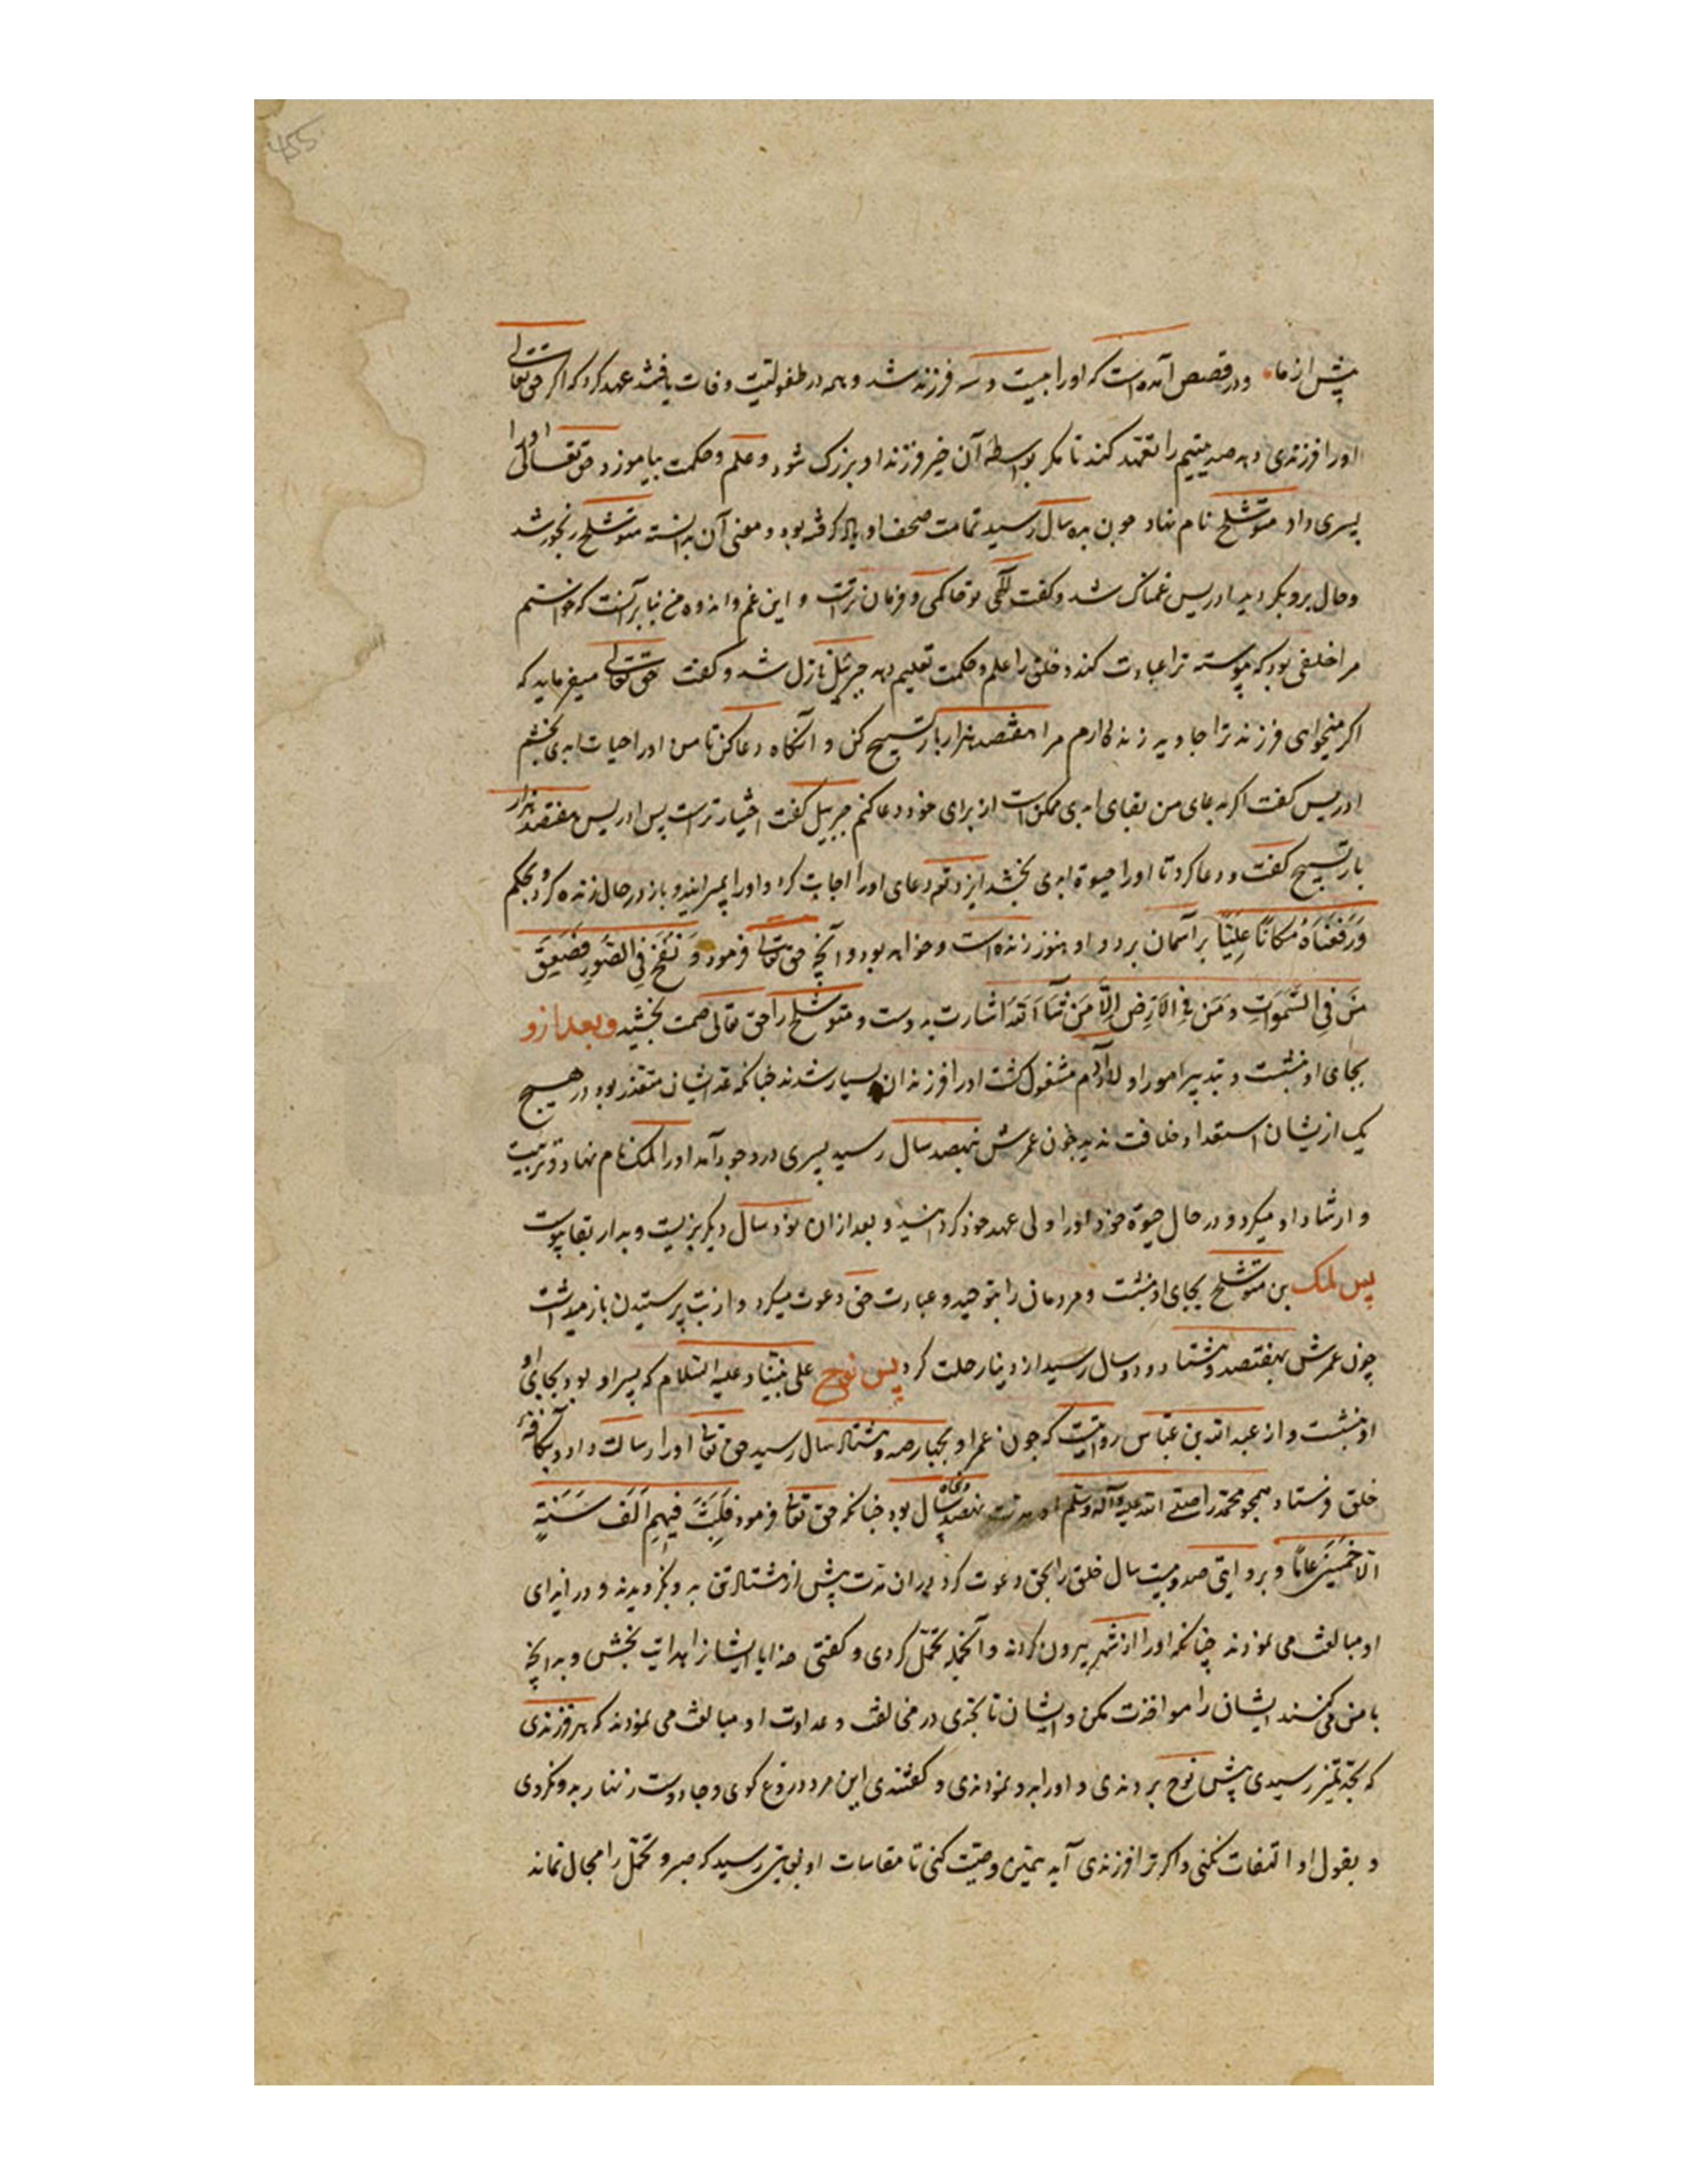 پیش از ما و در قصص آمده است که او را بیست و سه فرزند شد و همه در طفولیت وفات یافتند عهد کرد که اگر حق تعالی
او را فرزندی دهد صد یتیم را تعهد کند تا مگر بواسطه آن خیر فرزند او بزرگ شود و علم و حکمت بیاموزد حق تعالی او را
پسری داد متوشلح نام نهاد چون بده سال رسید تمامت صحف او یاد گرفته بود و معنی آن بدانسته متوشلح رنجور شد
و حال برو بگردید ادریس غمناک شد و گفت الهی تو حاکمی و فرمان تراست و این غم و اندوه من بنابر آنست که خواستم
مرا خلفی بود که پیوسته ترا عبادت کند و خلق را علم و حکمت تعلیم دهد جبرئیل نازل شد و گفت حق تعالی میفرماید که
اگر میخواهی فرزند ترا جاوید زنده دارم مرا هفتصد هزار بار تسبیح کن و آنگاه دعا کن تا من او را حیات ابدی بخشم
ادریس گفت اگر بدعای من بقای ابدی ممکن است از برای خود دعا کنم جبرییل گفت اختیار تراست پس ادریس هفتصد هزار
بار تسبیح گفت و دعا کرد تا او را حیوة ابدی بخشد ایزد تع دعای او را اجابت کرد و او را بمیرانید و باز در حال زنده کرد و بحکم
وَرَفَعْنَاهُ مَكَانًا عَلِيًّا بر آسمان برد و او هنوز زنده است و خواهد بود و آنچه حق تعالی فرمود وَنُفِخَ فِي الصُّورِ فَصَعِقَ
مَن فِي السَّمٰوَاتِ وَمَن فِي الْأَرْضِ إِلَّا مَن شَآءَ اللَّه اشارت بدوست و متوشلح را حق تعالی صحت بخشید و بعد ازو
بجای او بنشست و بتدبیر امور اولاد آدم مشغول گشت او را فرزندان بسیار شدند چنانکه عد ایشان متعذر بود در هیچ
یک از یشان استعداد خلافت ندید چون عمرش بنهصد سال رسید پسری در وجود آمد او را لمک نام نهاد و تربیت
و ارشاد او میکرد و در حال حیوة خود او را ولی عهد خود گردانید و بعد از ان نود سال دیگر بزیست و بدار بقا پیوست
پس لمک بن متوشلح بجای او بنشست و مردمان را بتوحید و عبادت حق دعوت میکرد و از بت پرستیدن باز میداشت
چون عمرش بهفتصد و هشتاد و دو سال رسید از دنیا رحلت کرد پس نوح علی نبینا و علیه السلام که پسر او بود بجای او
او بنشست و از عبد الله بن عباس روایتست که چون عمر او بچهار صد و هشتاد سال رسید حق تعالی او را رسالت داد و بکافه
خلق فرستاد همچو محمد را صلی الله علیه وآله وسلم او مدت نهصد و پنجاه سال بود چنانکه حق تعالی فرمود فَلَبِثَ فِيهِمْ أَلْفَ سَنَةٍ
إلّا خَمْسِينَ عَامًا و بروایتی صد و بیست سال خلق را بحق دعوت کرد در ان مدت پیش از هشتاد تن بدو نگرویدند و در ایذای
او مبالغت می نمودند چنانکه او را از شهر بیرون کردند و آنجمله تحمل کردی و گفتی خدایا ایشانرا هدایت بخش و بدانچه
با من می کنند ایشان را مواخذت مکن و ایشان تا بحدی در مخالفت و عداوت او مبالغت می نمودند که هر فرزندی
که بحد تمیز رسیدی پیش نوح بردندی و او را بدو نمودندی و گفتندی این مرد دروغ گوی و جادوست زنهار بدو نگروی
و بقول او التفات نکنی و اگر ترا فرزندی آید همین وصیت کنی تا مقاسات او بغایتی رسید که صبر و تحمل را مجال نماند